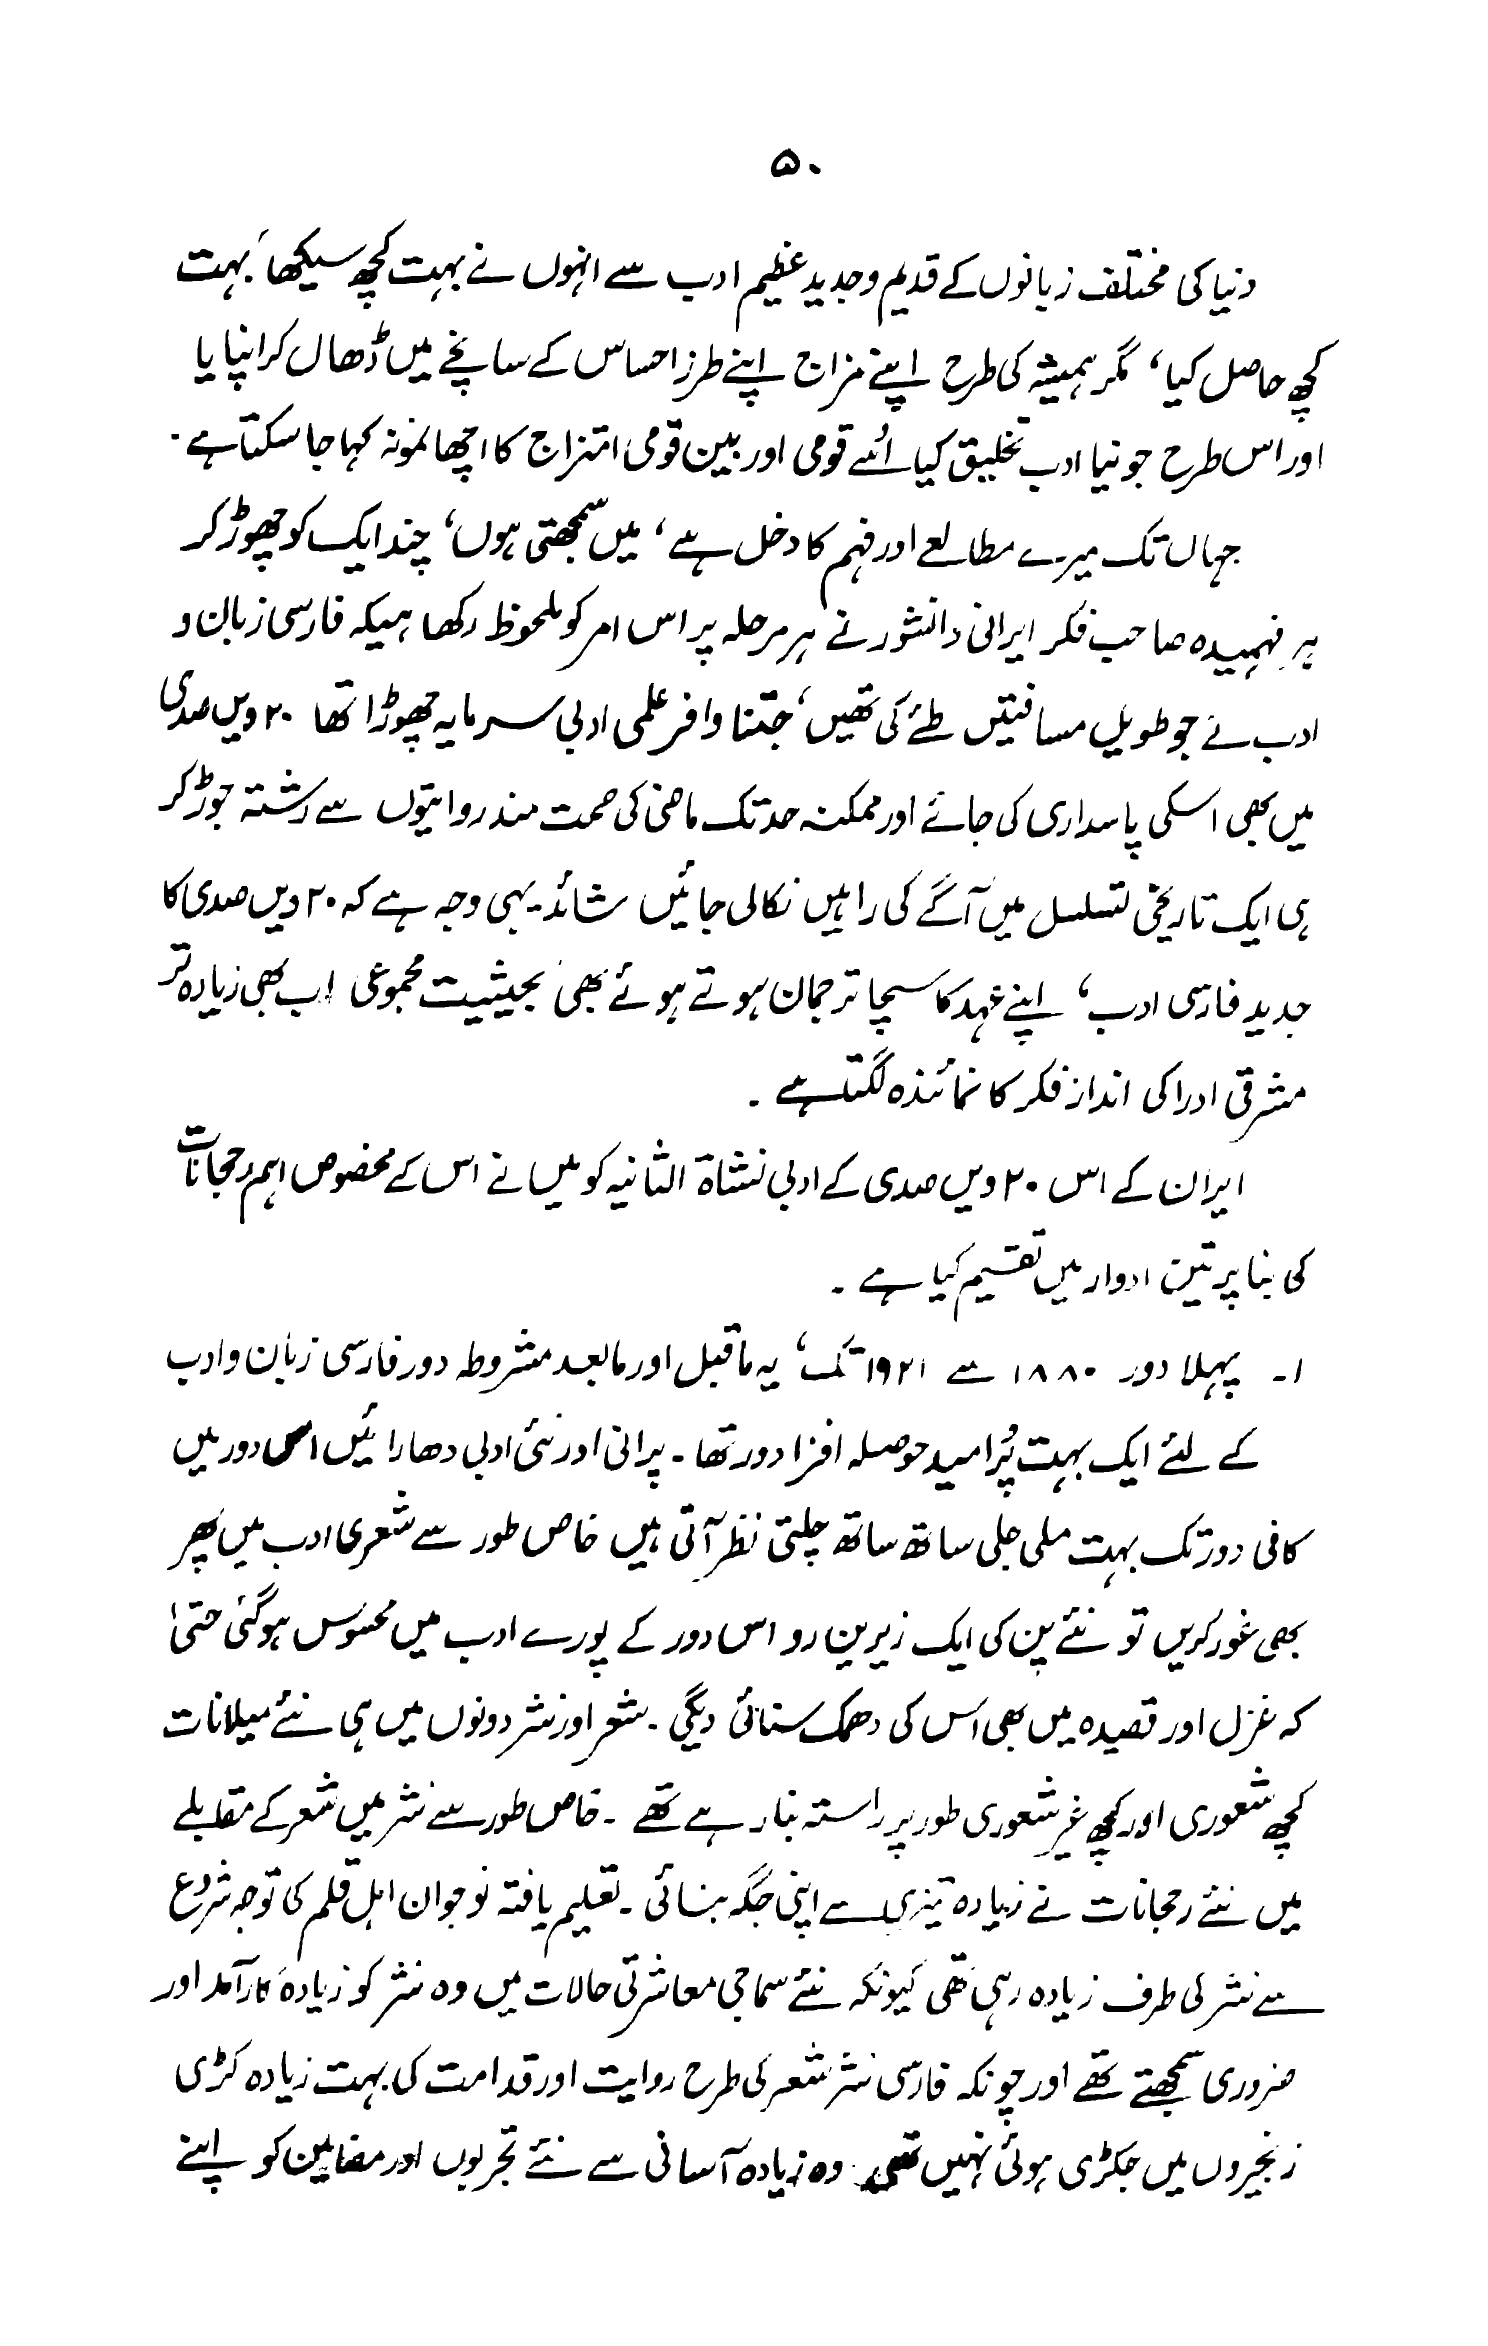 ۵۰
دنیا کی مختلف زبانوں کے قدیم و جدید عظیم ادب سے انہوں نے بہت کچھ سیکھا، بہت
کچھ حاصل کیا، مگر ہمیشہ کی طرح اپنے مزاج اپنے طرز احساس کے سانچے میں ڈھال کر اپنایا
اور اس طرح جو نیا ادب تخلیق کیا اُسے قومی اور بین قومی امتزاج کا اچھا نمونہ کہا جا سکتا ہے۔
جہاں تک میرے مطالعے اور فہم کا دخل ہے، میں سمجھتی ہوں، چند ایک کو چھوڑ کر
ہر فہمیدہ صاحب فکر ایرانی دانشور نے ہر مرحلہ پر اس امر کو ملحوظ رکھا ہیکہ فارسی زبان و
ادب نے جو طویل مسافتیں طئے کی تھیں، جتنا وافر علمی ادبی سرمایہ چھوڑا تھا ۲۰ ویں صدی
میں بھی اسکی پاسداری کی جائے اور ممکنہ حد تک ماضی کی صحت مند روایتوں سے رشتہ جوڑ کر
ہی ایک تاریخی تسلسل میں آگے کی راہیں نکالی جائیں شائد یہی وجہ ہے کہ ۲۰ ویں صدی کا
جدید فارسی ادب، اپنے عہد کا سچا ترجمان ہوتے ہوئے بھی بحیثیت مجموعی اب بھی زیادہ تر
مشرقی ادراکی انداز فکر کا نمائندہ لگتا ہے۔
ایران کے اس ۲۰ ویں صدی کے ادبی نشاۃ الثانیہ کو میں نے اس کے مخصوص اہم رجحانات
کی بنا پر تین ادوار میں تقسیم کیا ہے۔
۱۔ پہلا دور ۱۸۸۰ سے ۱۹۲۱ تک، یہ ماقبل اور مابعد مشروطہ دور فارسی زبان و ادب
کے لئے ایک بہت پُرامید حوصلہ افزا دور تھا۔ پرانی اور نئی ادبی دھارائیں اس دور میں
کافی دور تک بہت ملی جلی ساتھ ساتھ چلتی نظر آتی ہیں خاص طور سے شعری ادب میں پھر
بھی غور کریں تو نئے پن کی ایک زیرین رو اس دور کے پورے ادب میں محسوس ہوگئی حتیٰ
کہ غزل اور قصیدہ میں بھی اس کی دھمک سنائی دیگی۔ شعر اور نثر دونوں میں ہی نئے میلانات
کچھ شعوری اور کچھ غیر شعوری طور پر راستہ بنا رہے تھے۔ خاص طور سے نثر میں شعر کے مقابلے
میں نئے رجحانات نے زیادہ تیزی سے اپنی جگہ بنائی۔ تعلیم یافتہ نوجوان اہل قلم کی توجہ شروع
سے نثر کی طرف زیادہ رہی تھی کیونکہ نئے سماجی معاشرتی حالات میں وہ نثر کو زیادہ کارآمد اور
ضروری سمجھتے تھے اور چونکہ فارسی نثر شعر کی طرح روایت اور قدامت کی بہت زیادہ کڑی
زنجیروں میں جکڑی ہوئی نہیں تھی وہ زیادہ آسانی سے نئے تجربوں اور مضامین کو اپنے